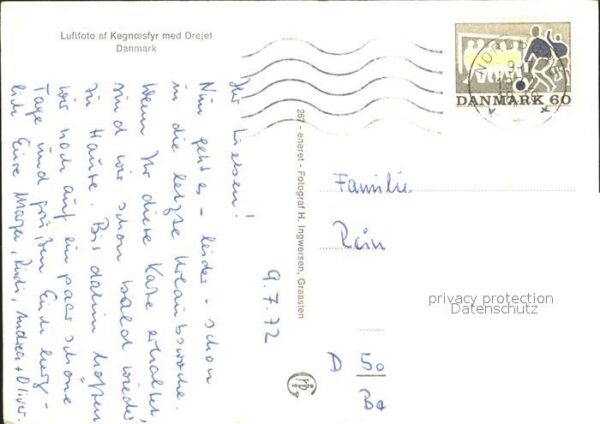 Luftfoto af Kegnæsfyr med Drejet
Danmark
DANMARK 60
9.7.72
Ihr Lieben!
Nun geht es - leider - schon
in die letzte Urlaubswoche.
Wenn Ihr diese Karte erhaltet,
sind wir schon bald wieder
zu Hause. Bis dahin hoffen
wir noch auf ein paar schöne
Tage und grüßen Euch herz-
lich Eure Marga, Rudi, Andrea + Oliver.
267 - eneret - Fotograf H. Ingwersen, Graasten
Familie
Rein
privacy protection
Datenschutz
D 50